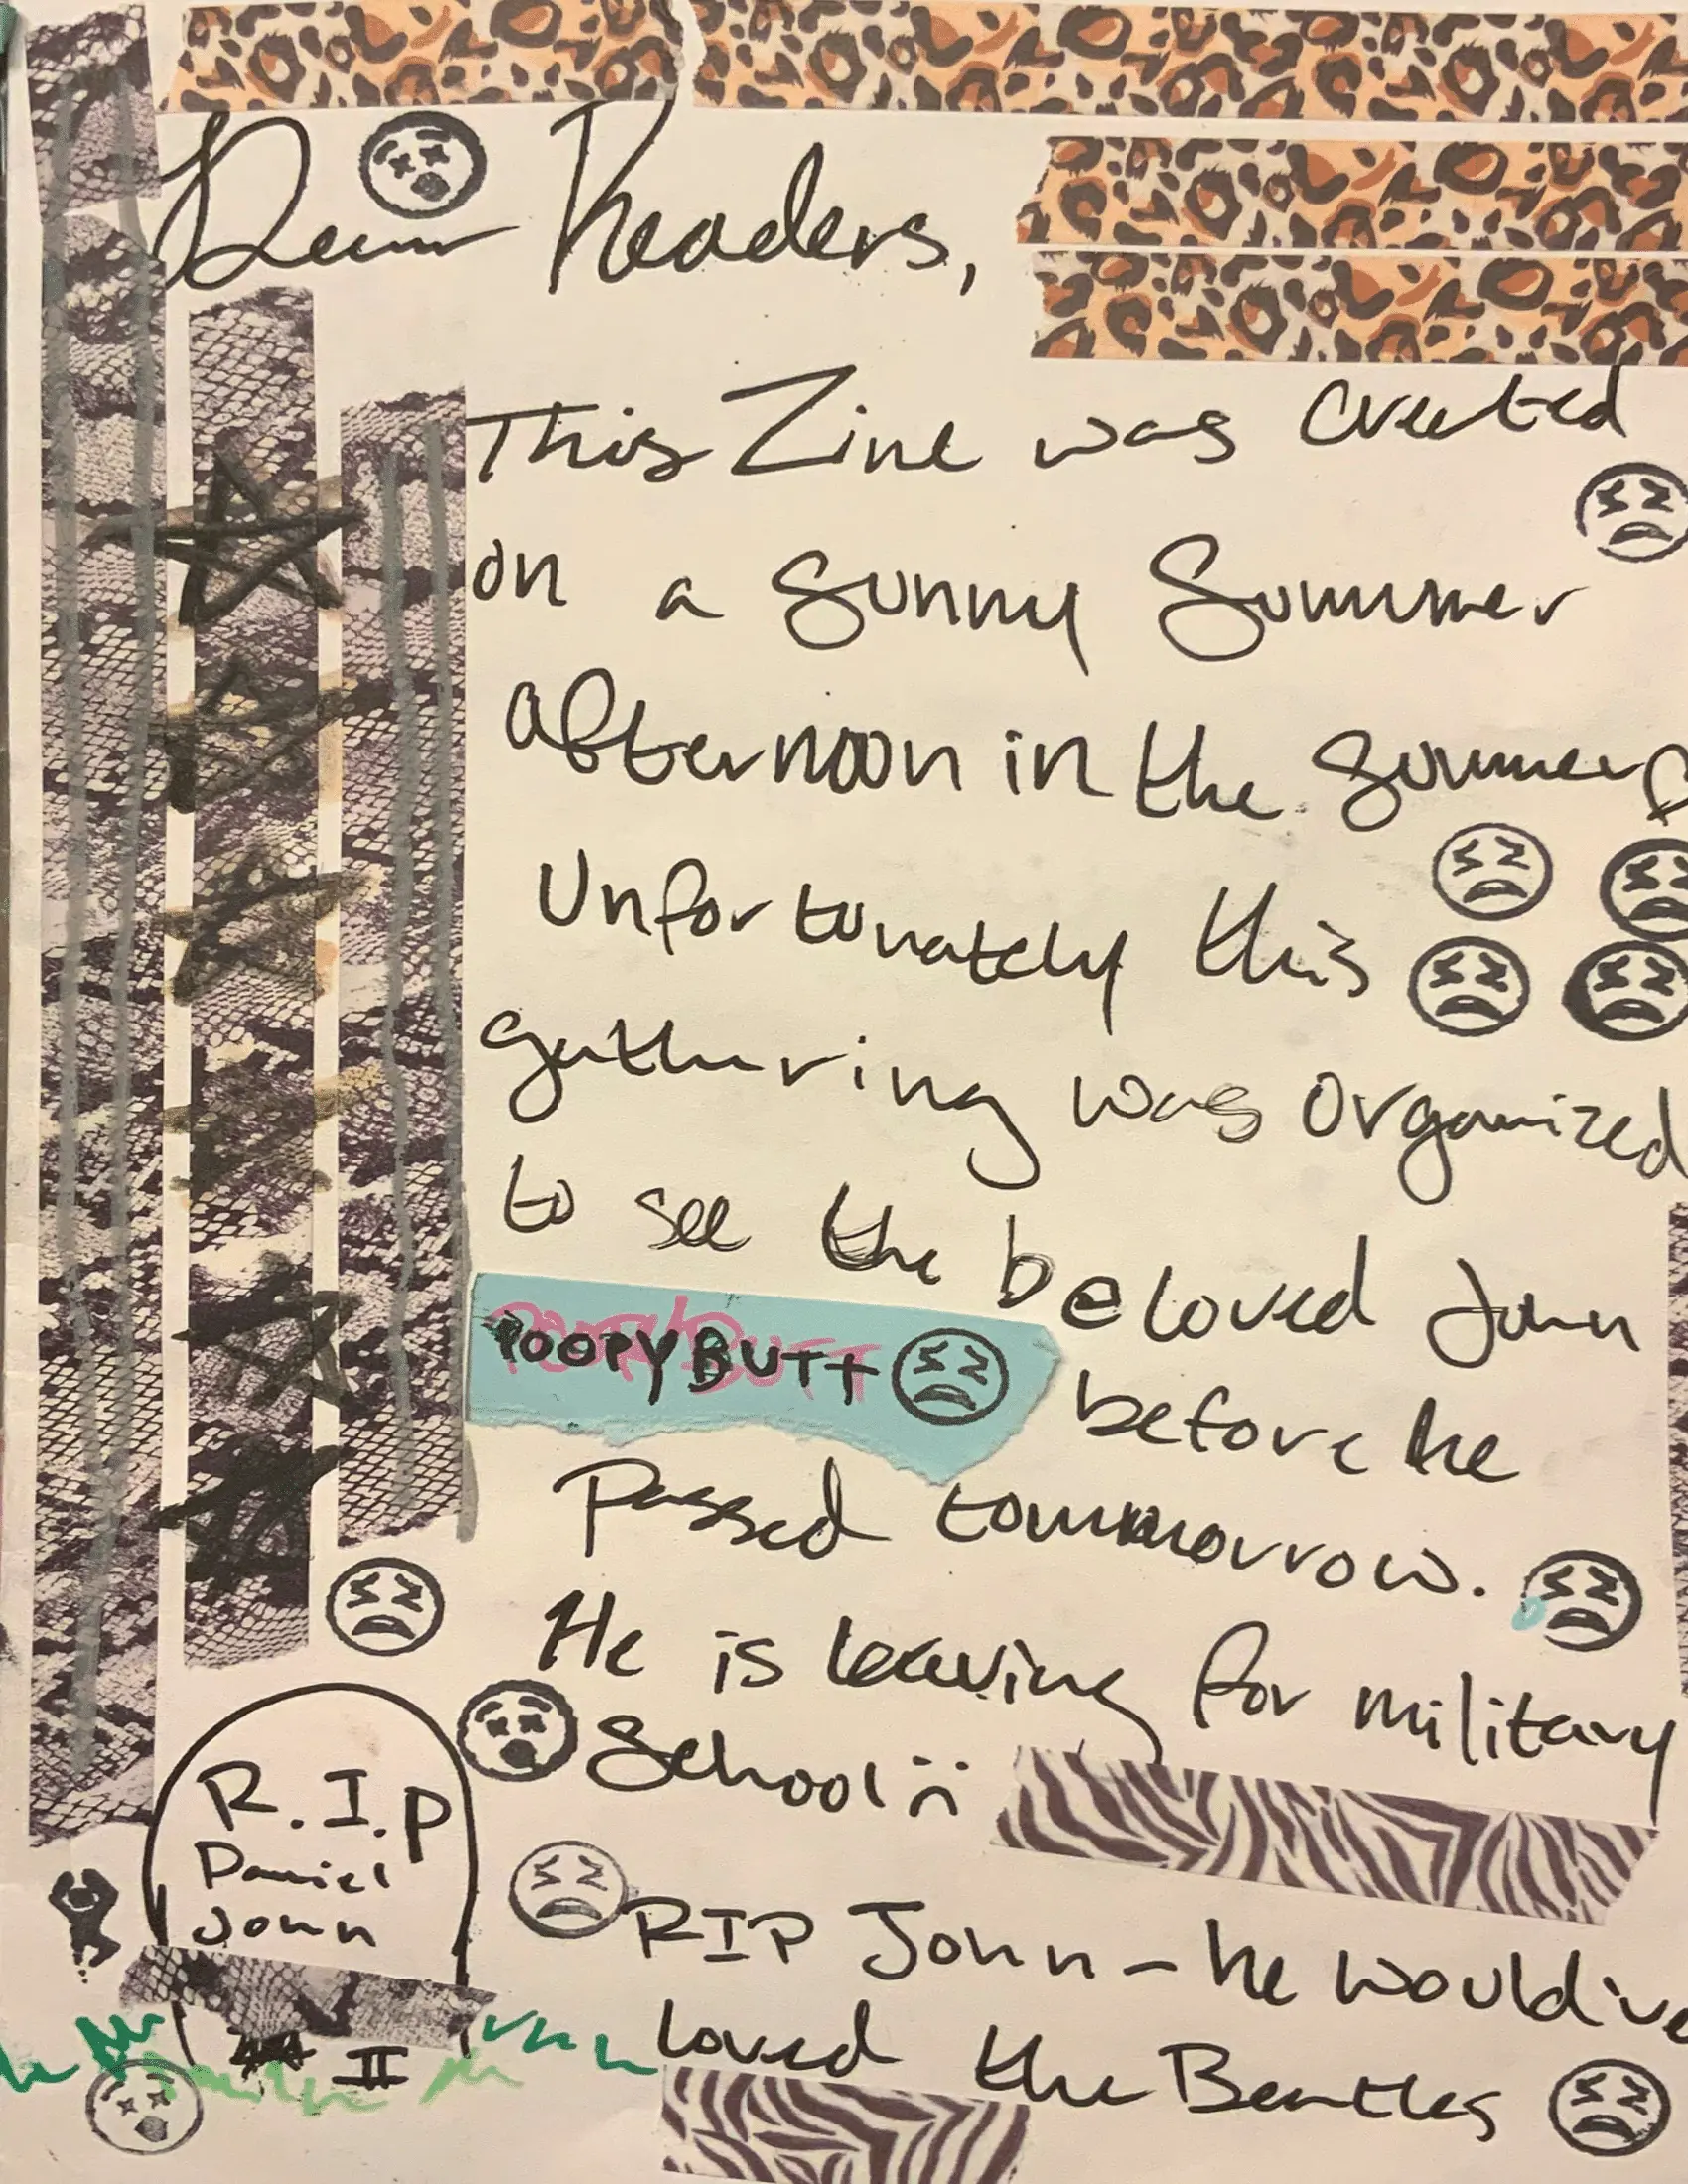 Dear Readers,
This Zine was created
on a sunny Summer
afternoon in the summer
Unfortunately this
gathering was organized
to see the beloved John
POOPYBUTT before he
Passed tommorrow.
He is leaving for military
School :(
R.I.P
Daniel
John
II
RIP John - he would've
loved the Beatles